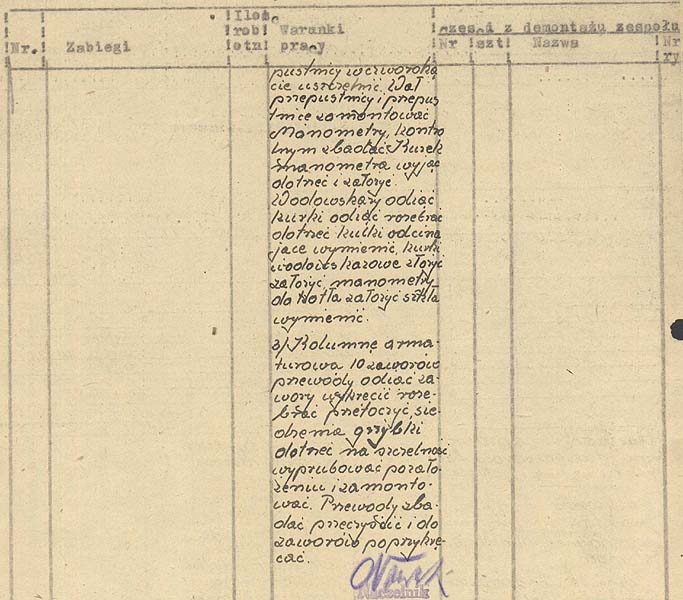 Nr.
Zabiegi
Ilość
rob
otn
Warunki
pracy
części z demontażu zespołu
Nr
szt
Nazwa
Nr
ry
pustnicy w czworoką
cie uszczelnić. Wał
przepustnicy i przepus
tnicę zamontować
Manometry, kontro
lnym zbadać. Kurek
manometra wyjąć
dotrzeć i założyć.
Wodowskazy odjąć
kurki odjąć rozebrać
dotrzeć kulki odcina
jące wymienić, kurki
wodowskazowe złożyć
założyć manometry
do kotła założyć szkła
wymienić.
3/ Kolumnę arma-
turowa 10 zaworów
przewody odjąć za-
wory wykręcić roze-
brać przetoczyć, sie-
dzenia grzybki
dotrzeć na szczelność
wypróbować po zało-
żeniu i zamonto-
wać. Przewody zba-
dać przeczyścić i do
zaworów poprzykrę-
cać.
Naczelnik